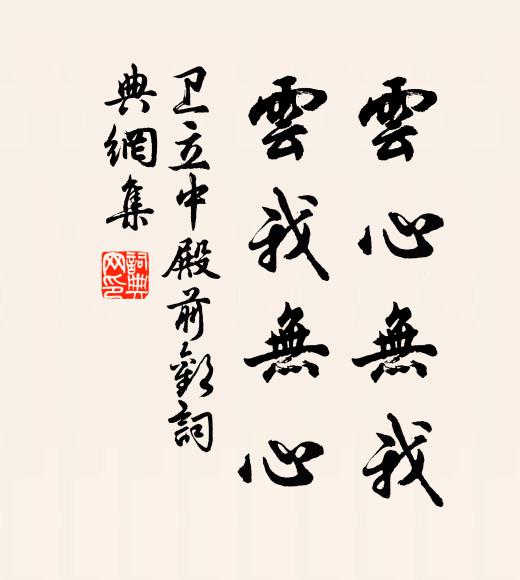 雲心無我
雲我無心
卫立中殿前歡詞
典網集
詞典
网印